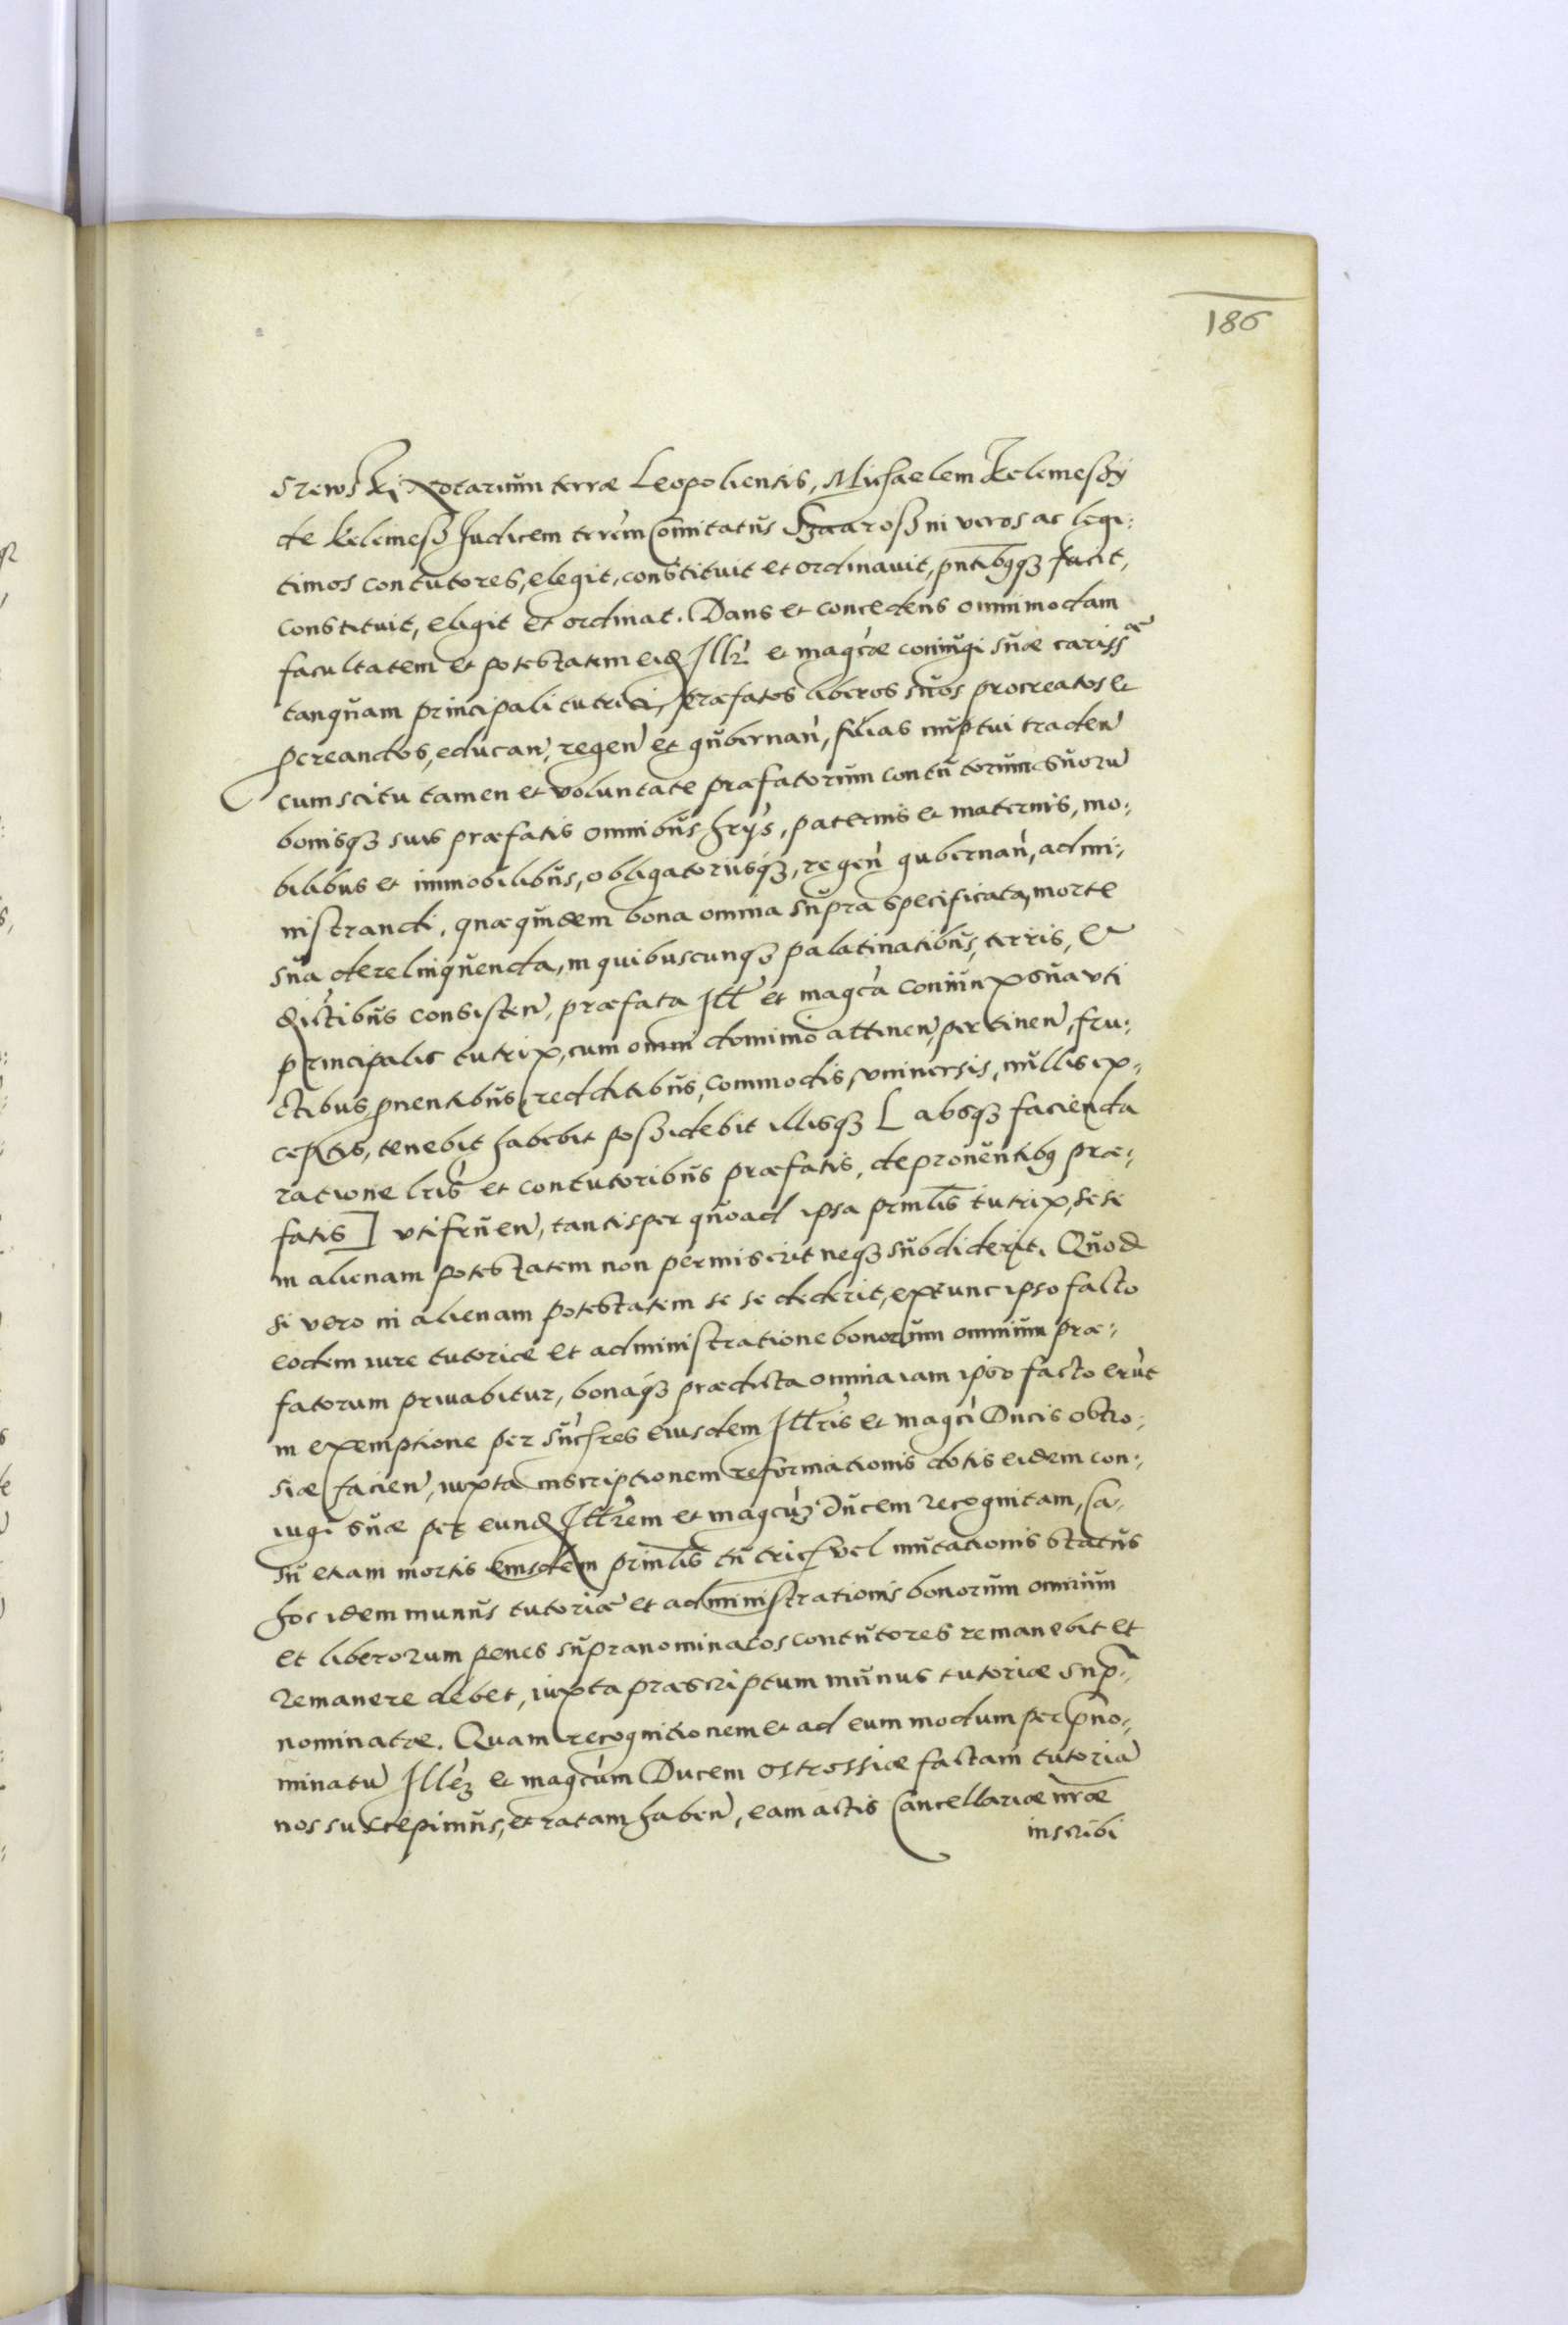 186
srewski Notarium terræ Leopoliensis, Michaelem Kelemeszÿ
de Kelemesz Judicem terrem Comitatus Szaarosz in veros ac legi:
timos contutores, elegit, constituit et ordinavit, pntibusqz facit,
constituit, eligit et ordinat. Dans et concedens omnimodam
facultatem et potestatem eid Illri et magcæ coniugi suæ carissæ
tanquam principali tutrici, præfatos liberos suos procreatos et
pcreandos, educan, regen et gubernan, filias nuptui traden
cum scitu tamen et voluntate præfatorum contutorum suoru
bonisqz suis præfatis omnibus hrÿs, paternis et maternis, mo:
bilibus et immobilibus, obligatoriisqz, regen gubernan, admi:
nistrandi, quæquidem bona omnia supra specificata, morte
sua derelinquenda, in quibuscunqz palatinatibus, terris, et
dictibus consisten, præfata Ill et magca coniunx sua uti
principalis tutrix, cum omni dominio attinen, pertinen, fru:
ctibus pventibus redditibus, commodis universis, nullis ex:
ceptis, tenebit habebit possidebit illisqz [ absqz facienda
ratione lris et contutoribus præfatis, de proventibus præ:
fatis ] utifruen, tantisper quoad ipsa prinlis tutrix, sese
in alienam potestatem non permiserit neqz subdiderit. Quod
si vero in alienam potestatem se se dederit, extunc ipso facto
eodem iure tutoriæ et administratione bonorum omnium præ:
fatorum privabitur, bonaqz prædicta omnia iam ipso facto erut
in exemptione per succres eiusdem Illris et magci Ducis Ostro:
siæ facien, iuxta inscriptionem reformationis dotis eidem con:
iugi suæ per eund Illrem et magcuz Ducem recognitam, Ca:
su etiam mortis eiusdem prinlis tutricis vel mutationis status
hoc idem munus tutoriæ et administrationis bonorum omnium
et liberorum penes supranominatos contutores remanebit et
remanere debet, iuxta præscriptum munus tutoriæ sup:
nominatæ. Quam recognitionem et ad eum modum per pno:
minatu Illez et magcum Ducem Ostrossiæ factam tutoria
nos suscepimus, et ratam haben, eam actis Cancellariæ nræ
inscribi